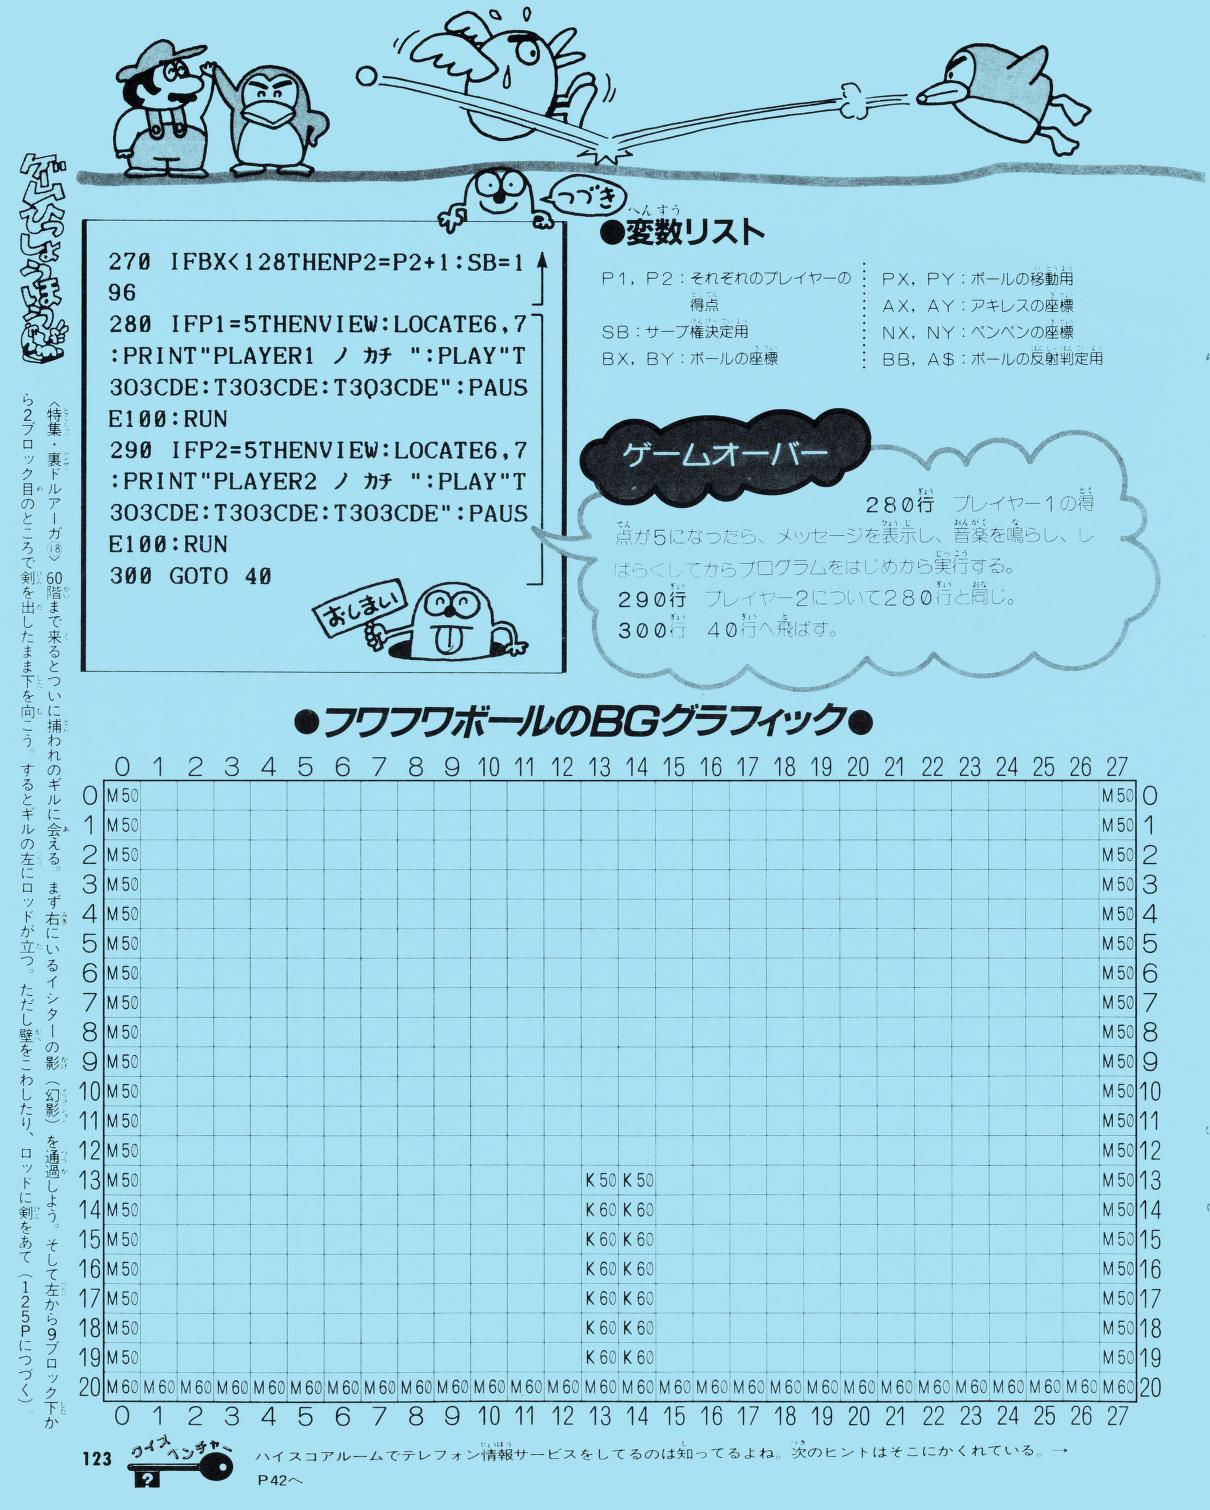 つづき
270 IFBX<128THENP2=P2+1:SB=1
96
280 IFP1=5THENVIEW:LOCATE6,7
:PRINT"PLAYER1 ノ カチ ":PLAY"T
3O3CDE:T3O3CDE:T3O3CDE":PAUS
E100:RUN
290 IFP2=5THENVIEW:LOCATE6,7
:PRINT"PLAYER2 ノ カチ ":PLAY"T
3O3CDE:T3O3CDE:T3O3CDE":PAUS
E100:RUN
300 GOTO 40
おしまい
●変数リスト
P1, P2：それぞれのプレイヤーの
得点
SB：サーブ権決定用
BX, BY：ボールの座標
PX, PY：ボールの移動用
AX, AY：アキレスの座標
NX, NY：ペンペンの座標
BB, A$：ボールの反射判定用
ゲームオーバー
280行 プレイヤー1の得
点が5になったら、メッセージを表示し、音楽を鳴らし、し
ばらくしてからプログラムをはじめから実行する。
290行 プレイヤー2について280行と同じ。
300行 40行へ飛ばす。
●フワフワボールのBGグラフィック●
0 1 2 3 4 5 6 7 8 9 10 11 12 13 14 15 16 17 18 19 20 21 22 23 24 25 26 27
0 M50 M50 0
1 M50 M50 1
2 M50 M50 2
3 M50 M50 3
4 M50 M50 4
5 M50 M50 5
6 M50 M50 6
7 M50 M50 7
8 M50 M50 8
9 M50 M50 9
10 M50 M50 10
11 M50 M50 11
12 M50 M50 12
13 M50 K50 K50 M50 13
14 M50 K60 K60 M50 14
15 M50 K60 K60 M50 15
16 M50 K60 K60 M50 16
17 M50 K60 K60 M50 17
18 M50 K60 K60 M50 18
19 M50 K60 K60 M50 19
20 M60 M60 M60 M60 M60 M60 M60 M60 M60 M60 M60 M60 M60 M60 M60 M60 M60 M60 M60 M60 M60 M60 M60 M60 M60 M60 M60 M60 20
0 1 2 3 4 5 6 7 8 9 10 11 12 13 14 15 16 17 18 19 20 21 22 23 24 25 26 27
ゲームひっしょうほう
〈特集・裏ドルアーガ⑱〉60階まで来るとついに捕われのギルに会える。まず右にいるイシターの影（幻影）を通過しよう。そして左から9ブロック下か
ら2ブロック目のところで剣を出したまま下を向こう。するとギルの左にロッドが立つ。ただし壁をこわしたり、ロッドに剣をあて（125Pにつづく）
123
クイズ
ベンチャー
?
ハイスコアルームでテレフォン情報サービスをしてるのは知ってるよね。次のヒントはそこにかくれている。→
P42へ